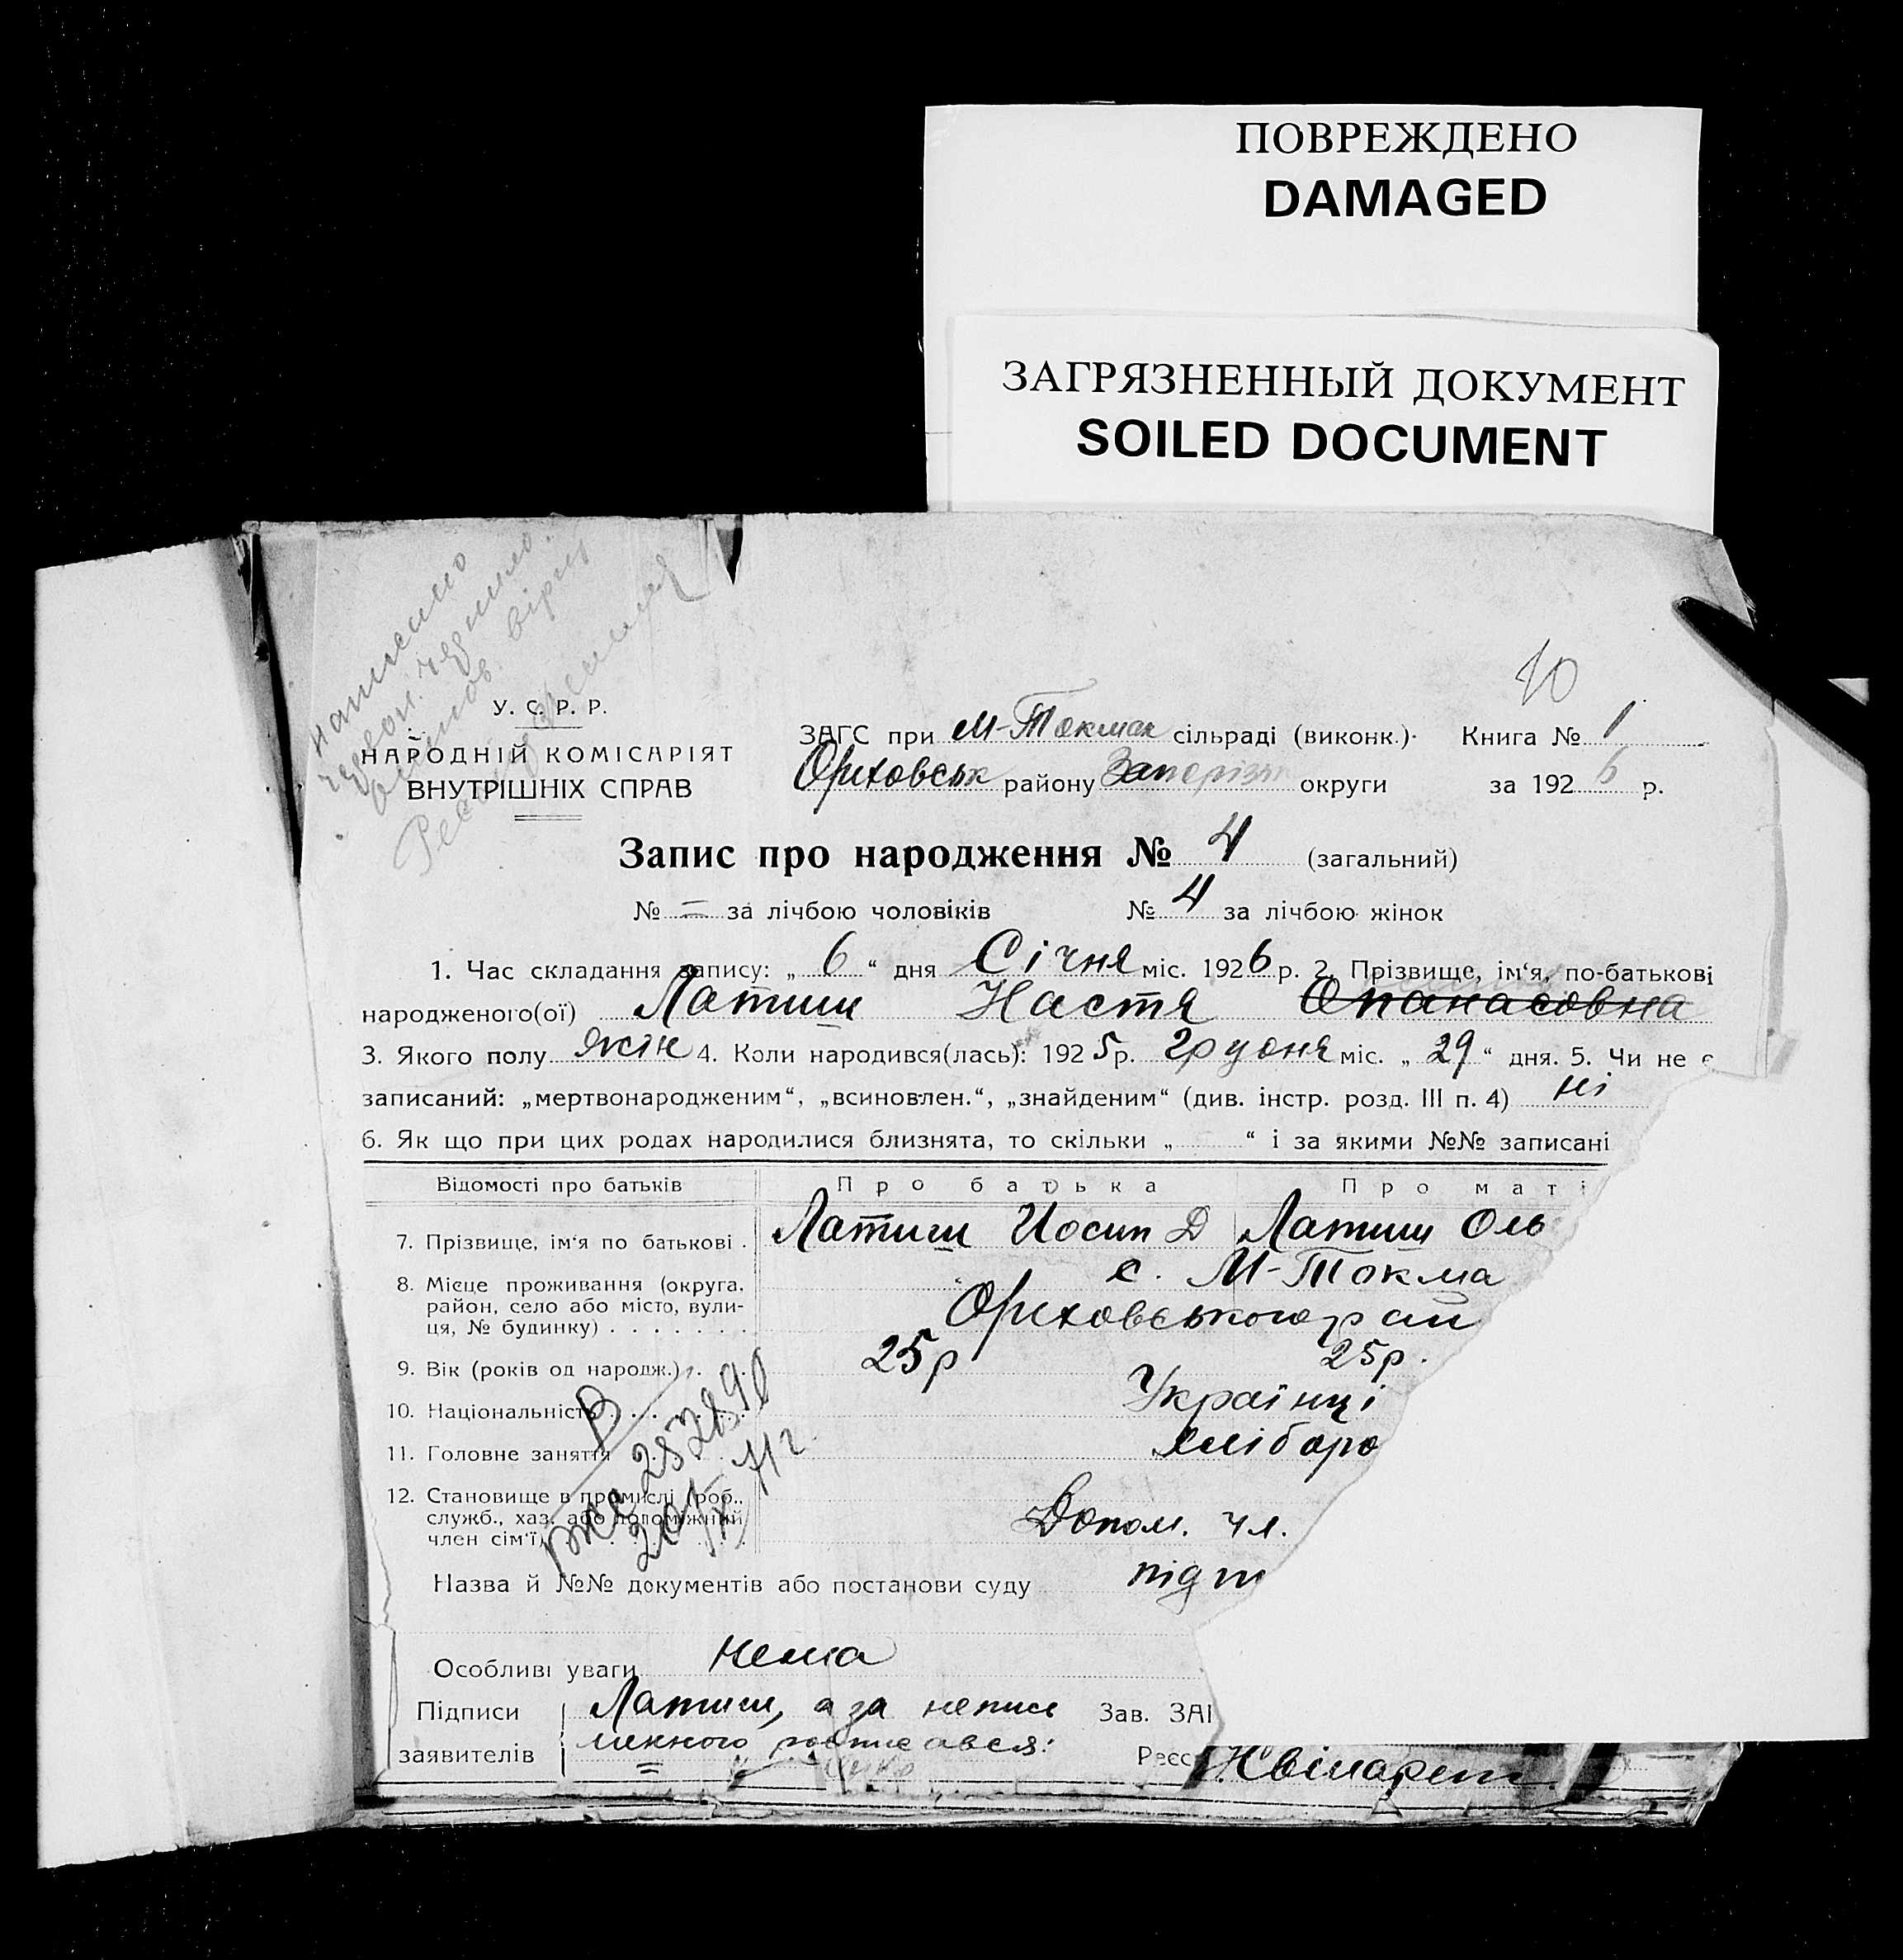 ПОВРЕЖДЕНО
DAMAGED
ЗАГРЯЗНЕННЫЙ ДОКУМЕНТ
SOILED DOCUMENT
10
написано
У. С. Р. Р.
НАРОДНІЙ КОМІСАРІЯТ
ВНУТРІШНІХ СПРАВ
ЗАГС при М-Токмак сільраді (виконк.). Книга № 1
Ориховськ району Запоріз округи за 1926 р.
Запис про народження № 4 (загальний)
№ = за лічбою чоловіків № 4 за лічбою жінок
1. Час складання запису: „ 6 “ дня Січня міс. 1926 р. 2. Прізвище, ім‘я, по-батькові
народженого(ої) Латиш Настя Опанасовна
3. Якого полу жін 4. Коли народився(лась): 1925 р. Грудня міс. „ 29 “ дня. 5. Чи не є
записаний: „мертвонародженим“, „всиновлен.“, „знайденим“ (див. інстр. розд. III п. 4) ні
6. Як що при цих родах народилися близнята, то скільки „ “ і за якими №№ записані
Відомості про батьків Про батька Про маті
7. Прізвище, ім‘я по батькові . Латиш Иосип Д Латиш Оль
8. Місце проживання (округа, район, село або місто, вулиця, № будинку) . . . . . . . с. М-Токма
Ориховського рай
9. Вік (років од народж.) . . 25р 25р.
10. Національність . . . . Українці
11. Головне заняття хліборо
12. Становище в промислі (роб.,
служб., хаз. або допоміжний
член сім‘ї) Допом. чл.
Назва й №№ документів або постанови суду підт
Особливі уваги нема
Підписи Латиш, а за неписьЗав. ЗАГ
заявителів менного росписався: Реєс